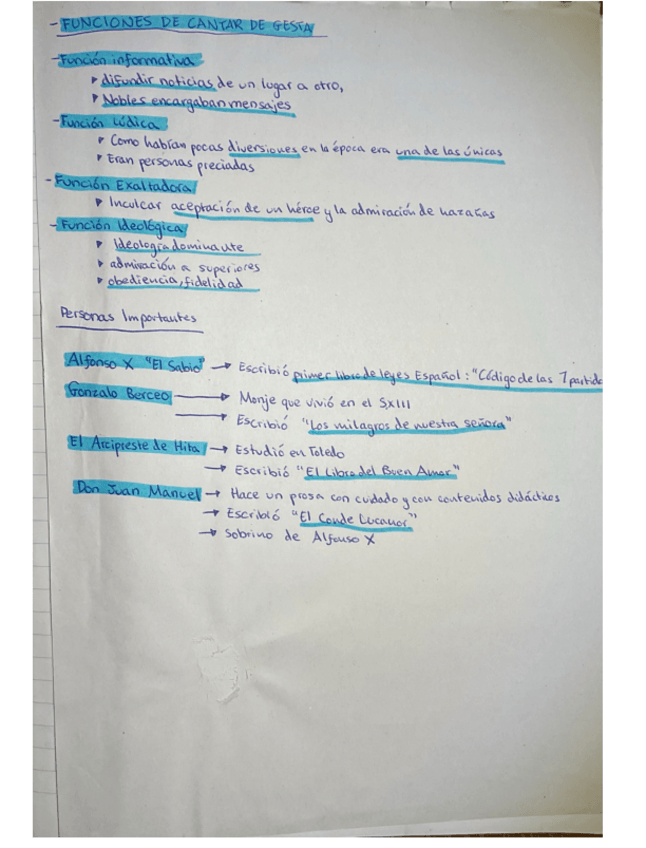 - FUNCIONES DE CANTAR DE GESTA
- Función informativa
▸ difundir noticias de un lugar a otro,
▸ Nobles encargaban mensajes
- Función Lúdica
▸ Como habían pocas diversiones en la época era una de las únicas
▸ Eran personas preciadas
- Función Exaltadora
▸ Inculcar aceptación de un héroe y la admiración de hazañas
- Función Ideológica
▸ Ideología dominante
▸ admiración a superiores
▸ obediencia, fidelidad
Personas Importantes
Alfonso X "El Sabio" → Escribió primer libro de leyes Español: "Código de las 7 partida
Gonzalo Berceo → Monje que vivió en el S.XIII
→ Escribió "Los milagros de nuestra señora"
El Arcipreste de Hita → Estudió en Toledo
→ Escribió "El Libro del Buen Amor"
Don Juan Manuel → Hace un prosa con cuidado y con contenidos didácticos
→ Escribió "El Conde Lucanor"
→ Sobrino de Alfonso X